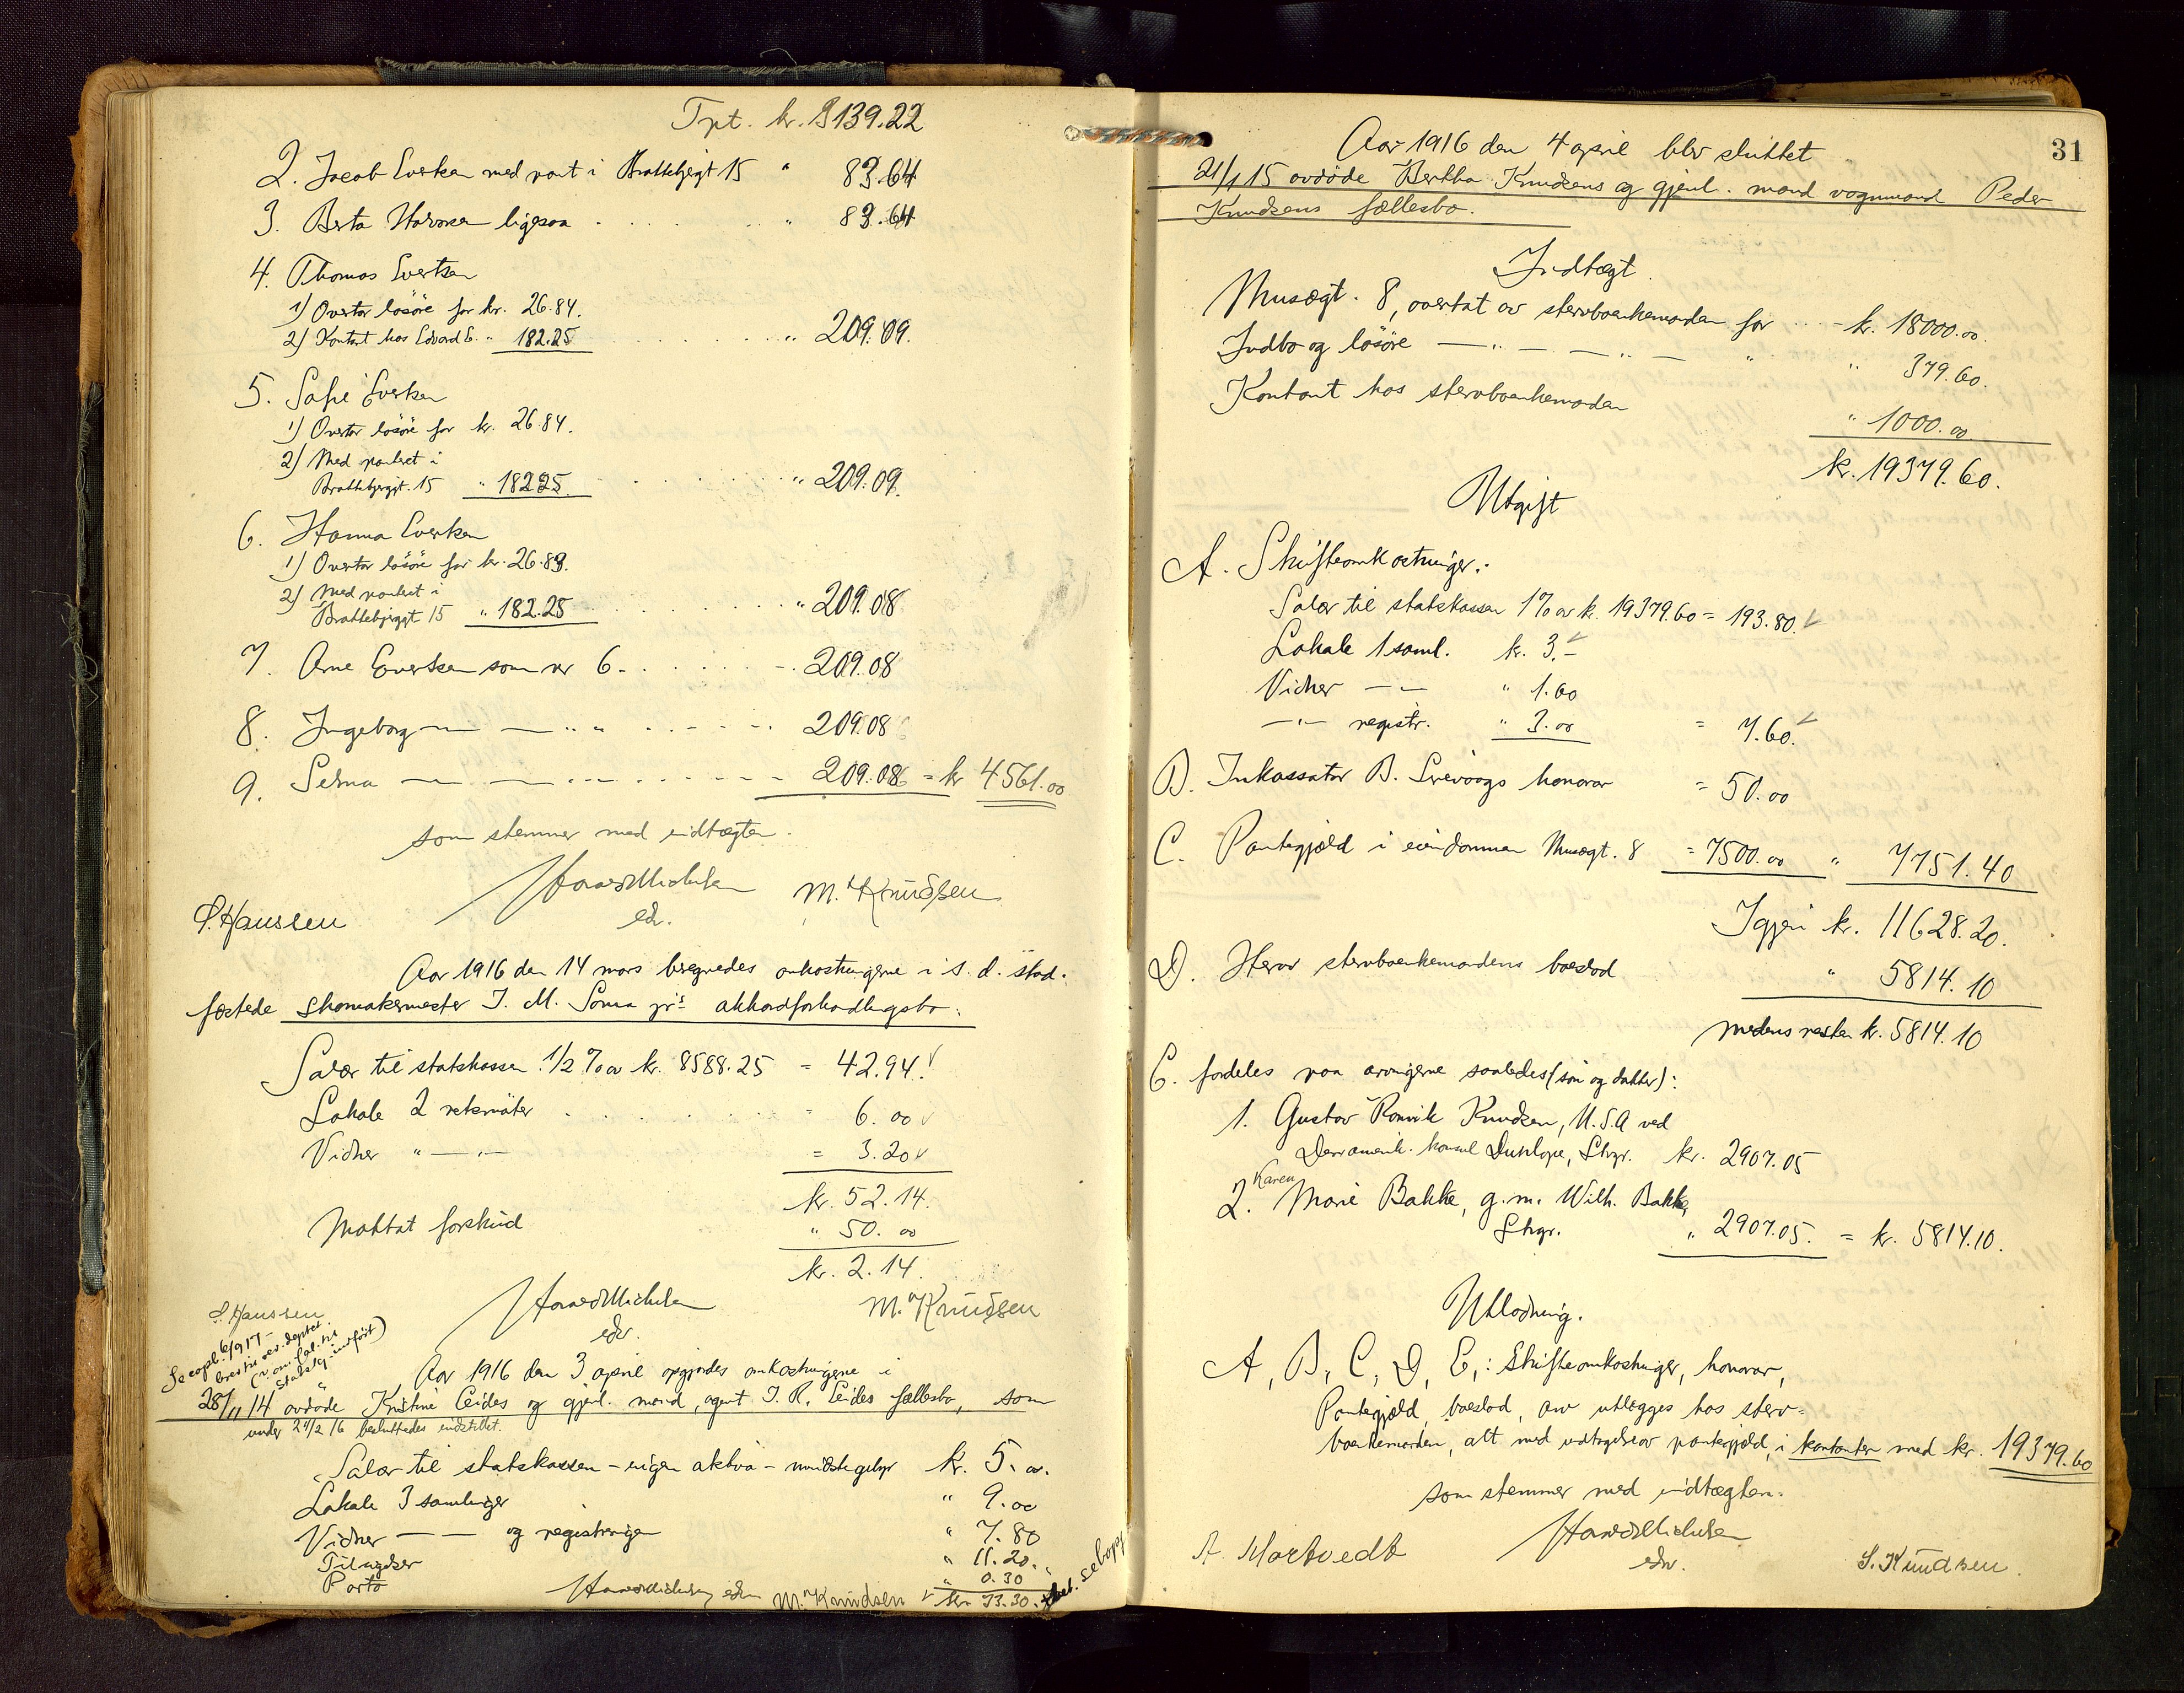 Tpt. kr. 3139.22
2. Jacob Evertsen med pant i Brattebjergt 15 " 83.64
3. Berta Halvorsen ligesaa . . . . " 83.64
4. Thomas Evertsen
1) Overtar lösöre for kr. 26.84.
2) Kontant hos Edvard E. " 182.25 . . . . " 209.09.
5. Sofie Evertsen
1) Overtar lösöre for kr. 26.84.
2) Med panteret i
Brattebjergt. 15 " 182.25 . . . . " 209.09.
6. Hanna Evertsen
1) Overtar lösöre for kr. 26.83.
2) Med panteret i
Brattebjergt 15 " 182.25 . . . . " 209.08
7. Arne Evertsen som nr 6 . . . . 209.08
8. Ingeborg — — " " . . . . 209.08
9. Selma — — . . . . 209.08 = kr 4561.00
som stemmer med indtægten.
S. Hanssen
edv.
M. Knudsen
Aar 1916 den 14 mars beregnedes omkostningerne i s. d. stad-
fæstede skomakermester J. M. Soma jr's akkordforhandlingsbo:
Salær til statskassen 1/2 % av kr. 8588.25 = 42.94.
Lokale 2 retsmöter . . . . = 6.00
Vidner " — " — = 3.20
kr. 52.14.
Mottat forskud " 50.00
kr. 2.14.
S. Hanssen
edv.
M. Knudsen
Aar 1916 den 3 april opgjordes omkostningerne i
28/11 14 avdöde Kristine Eides og gjenl. mand, agent J. R. Eides fællesbo, som
under 24/2 16 besluttedes indstillet.
Salær til statskassen – ingen aktiva – mindstegebyr kr. 5.00.
Lokale 3 samlinger " 9.00
Vidner — — og registreringen " 7.80
Tilsigelser " 11.20.
Porto " 0.30
edv. M. Knudsen kr 33.30.
31
Aar 1916 den 4 april blev sluttet
21/1 15 avdöde Bertha Knudsens og gjenl. mand vognmand Peder
Knudsens fællesbo.
Indtægt.
Musegt. 8, overtat av stervboenkemanden for . . . kr. 18000.00
Indbo og lösöre — " — — " — " " 379.60.
Kontant hos stervboenkemanden " 1000.00
kr. 19379.60.
Utgift
A. Skifteomkostninger:
Salær til statskassen 1 % av kr. 19379.60 = 193.80.
Lokale 1 saml. kr. 3.–
Vidner — — " 1.60
— " — registr. " 3.00 = 7.60.
B. Inkassator B. Sirevaags honorar = 50.00
C. Pantegjæld i eiendommen Musegt. 8 = 7500.00 " 7751.40
Igjen kr. 11628.20.
D. Herav stervboenkemandens boeslod " 5814.10
medens resten kr. 5814.10
E. fordeles paa arvingerne saaledes (sön og datter):
1. Gustav Romvik Knudsen, U.S.A ved
Den amerik. konsul Dunlope, Stvgr. kr. 2907.05
2. Karen Marie Bakke, g.m. Wilh. Bakke,
Stvgr. " 2907.05. = kr. 5814.10.
Utlodning.
A, B, C, D, E,: Skifteomkostninger, honorar,
Pantegjæld, boeslod, arv utlægges hos sterv-
boenkemanden, alt med undtagelse av pantegjæld, i kontanter med kr. 19379.60
som stemmer med indtægten.
A. Hartvedt
edv.
S. Knudsen.